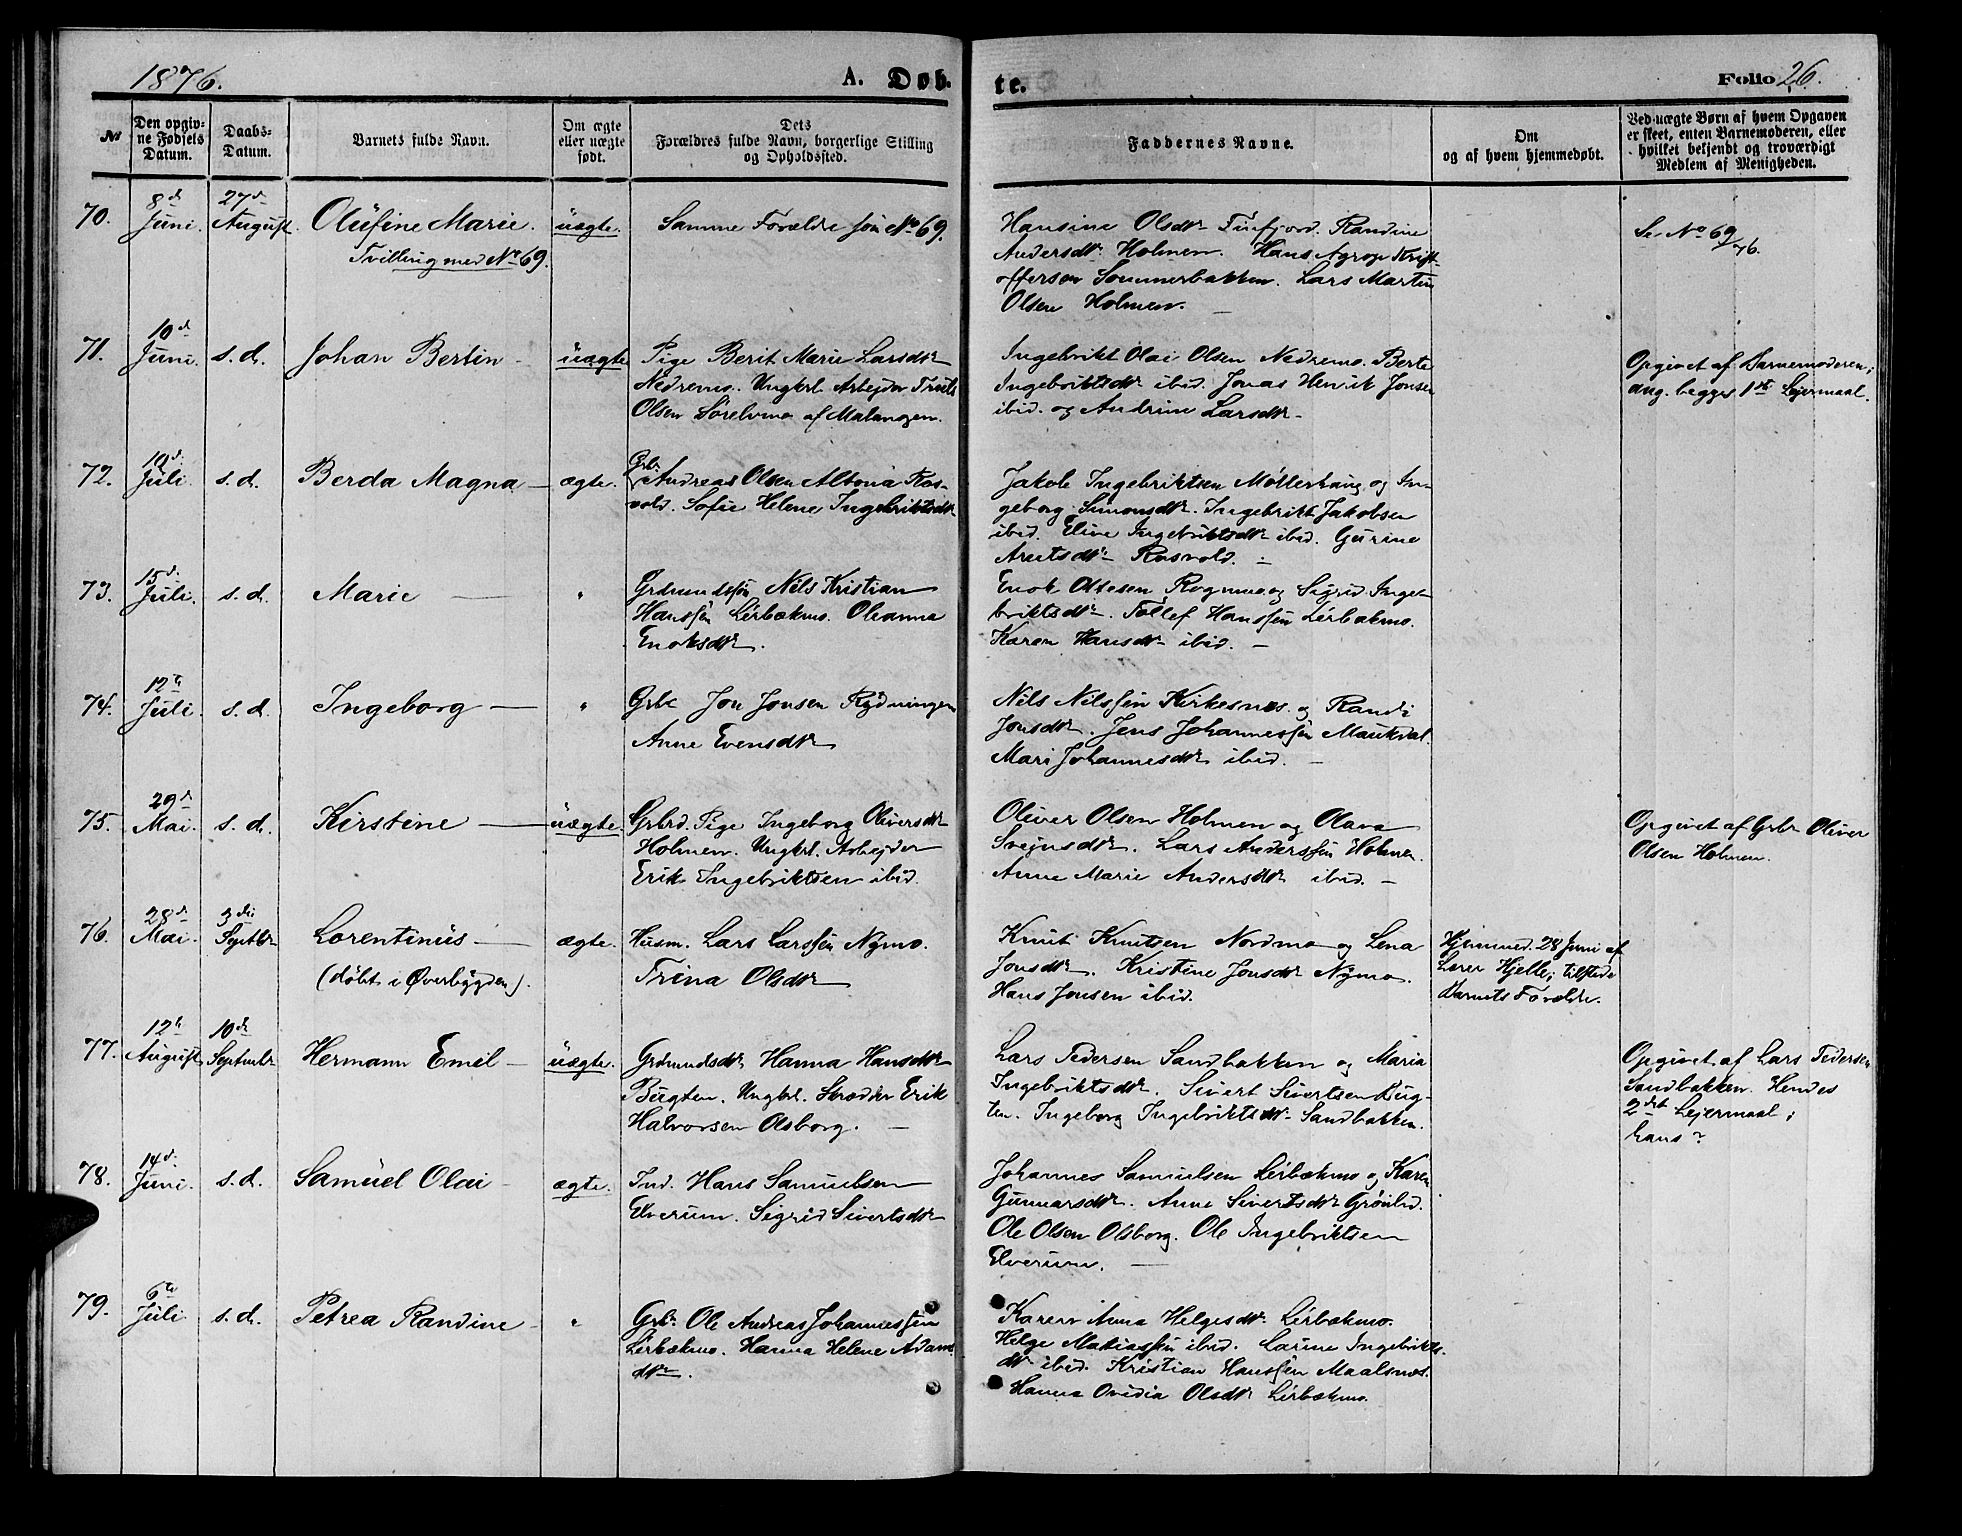 1876.
A. Døb-
te.
Folio 26.
No
Den opgiv-
ne Fødsels
Datum.
Daabs-
Datum.
Barnets fulde Navn.
Om ægte
eller uægte
født.
Dets
Forældres fulde Navn, borgerlige Stilling
og Opholdsted.
Faddernes Navne.
Om
og af hvem hjemmedøbt.
Ved uægte Børn af hvem Opgaven
er skeet, enten Barnemoderen, eller
hvilket bekjendt og troværdigt
Medlem af Menigheden.
70.
8de
Juni.
27de
August.
Olufine Marie.
Tvilling med No 69.
uægte.
Samme Forældre som No 69.
Hansine Olsdtr Finfjord. Randine
Andersdtr Holmen. Hans Agrop Krist-
offersen Sommerbakken. Lars Martin
Olsen Holmen. —
Se No 69/76.
71.
10de
Juni.
s. d.
Johan Bertin —
uægte
Pige Berit Marie Larsdtr
Nedremo. Ungkrl. Arbejder Truls
Olsen Sørelvmo af Malangen.
Ingebrikt Olai Olsen Nedremo. Berte
Ingebriktsdtr ibid. Jonas Henrik Jonsen
ibid. og Andrine Larsdtr —
Opgivet af Barnemoderen;
ang. begges 1ste Lejermaal.
72.
10de
Juli.
s. d.
Berda Magna —
ægte.
Grbr. Andreas Olsen Altona Ros-
vold. Sofie Helene Ingebriktsdtr
Jakob Ingebriktsen Møllerhaug og In-
geborg Simonsdtr. Ingebrikt Jakobsen
ibid. Eline Ingebriktsdtr ibid. Gurine
Arntsdtr Rosvold. —
73.
15de
Juli.
s. d.
Marie —
"
Grdmandssøn Nils Kristian
Hanssøn Lérbækmo. Oleanna
Enoksdtr.
Enok Ottesen Rognmo og Sigrid Inge-
briktsdtr. Tollef Hanssøn Lérbækmo.
Karen Hansdtr ibid. —
74.
12te
Juli.
s. d.
Ingeborg —
"
Grbr Jon Jonsen Rydningen
Anne Evensdtr
Nils Nilssøn Kirkesnes og Randi
Jonsdtr. Jens Johannessøn Maukdal.
Mari Johannesdtr ibid. —
75.
29de
Mai.
s. d.
Kirstine —
uægte.
Grbrd. Pige Ingeborg Oliversdtr
Holmen. Ungkrl. Arbejder
Erik Ingebriktsen ibid.
Oliver Olsen Holmen og Olava
Svejnsdtr. Lars Anderssøn Holmen.
Anne Marie Andersdtr ibid. —
Opgivet af Grbr Oliver
Olsen Holmen.
76.
28de
Mai.
3die
Septbr
Lorentinus —
(døbt i Øverbygden).
ægte.
Husm. Lars Larssøn Nymo.
Trina Olsdtr
Knut Knutsen Nordmo og Lena
Jonsdtr. Kristine Jonsdtr Nymo.
Hans Jonsen ibid.
Hjemmed. 28 Juni af
Lærer Hjelle; tilstede
Barnets Forældre.
77.
12te
August
10de
Septmbr
Hermann Emil —
uægte.
Grdmandsdtr Hanna Hansdtr
Bugten. Ungkrl. Skrædder Erik
Halvorsen Olsborg. —
Lars Pedersen Sandbakken og Maria
Ingebriktsdtr. Sivert Sivertsen Bug-
ten. Ingeborg Ingebriktsdtr Sandbakken.
Opgivet af Lars Pedersen
Sandbakken. Hendes
2det Lejermaal;
hans?
78.
14de
Juni.
s. d.
Samuel Olai —
ægte.
Ind. Hans Samuelsen
Elverum. Sigrid Sivertsdtr
Johannes Samuelsen Lérbækmo og Karen
Gunnarsdtr. Anne Sivertsdtr Grønlid.
Ole Olsen Olsborg. Ole Ingebriktsen
Elverum. —
79.
6te
Juli
s. d.
Petrea Randine —
"
Grbr. Ole Andreas Johannessøn
Lérbækmo. Hanna Helene Adams-
dtr.
Karen Anna Helgesdtr Lérbækmo.
Helge Matiassøn ibid. Larine Ingebrikts-
dtr ibid. Kristian Hanssøn Maalsnes.
Hanna Ovidia Olsdtr Lérbækmo.